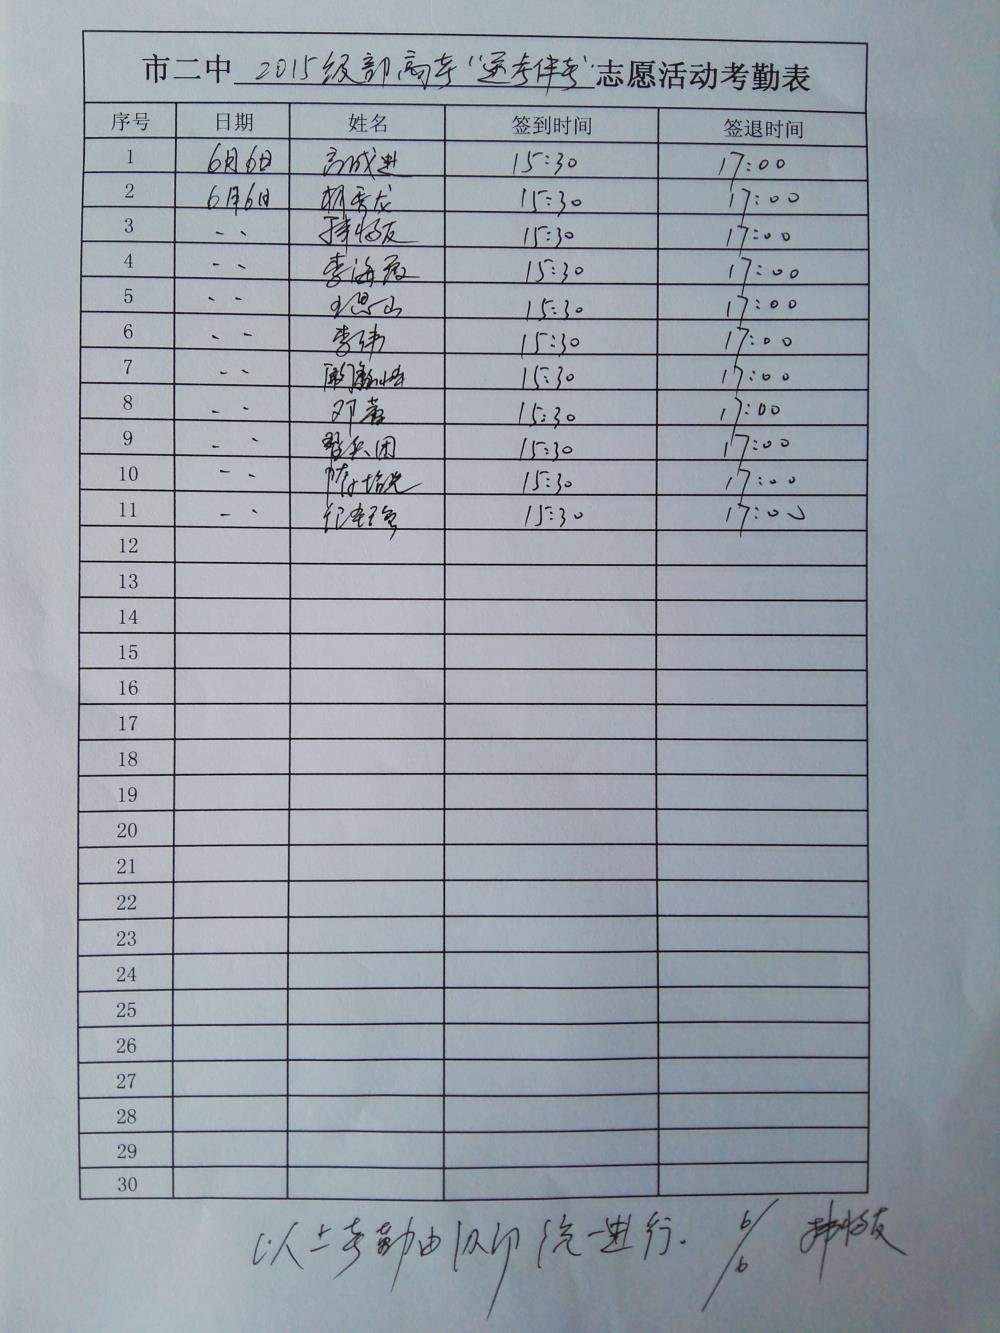 市二中 2015级部高考“送考伴考” 志愿活动考勤表
序号 日期 姓名 签到时间 签退时间
1 6月6日 高成进 15:30 17:00
2 6月6日 15:30 17:00
3 -- 15:30 17:00
4 -- 李海霞 15:30 17:00
5 -- 王思山 15:30 17:00
6 -- 李伟 15:30 17:00
7 -- 15:30 17:00
8 -- 邓蕾 15:30 17:00
9 -- 15:30 17:00
10 -- 15:30 17:00
11 -- 15:30 17:00
12
13
14
15
16
17
18
19
20
21
22
23
24
25
26
27
28
29
30
以上考勤由级部统一进行. 6/6